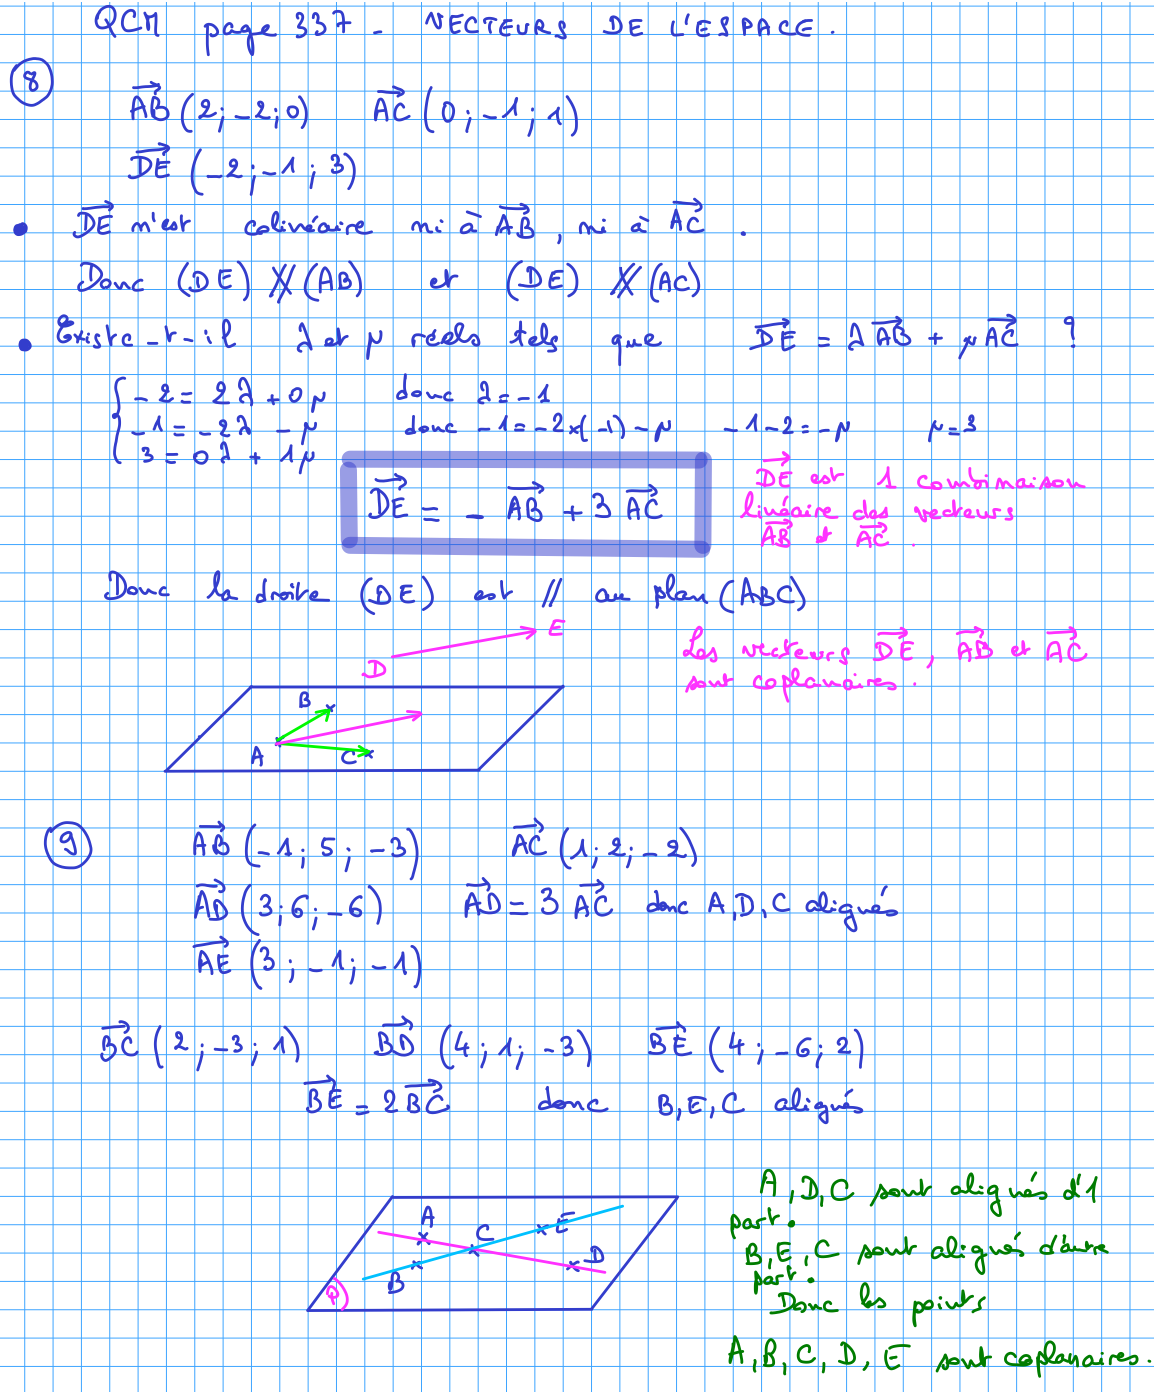 QCM page 337 - VECTEURS DE L'ESPACE.
8
AB (2; -2; 0) AC (0; -1; 1)
DE (-2; -1; 3)
• DE n'est colinéaire ni à AB, ni à AC.
Donc (DE) ∦ (AB) et (DE) ∦ (AC)
• Existe-t-il λ et μ réels tels que DE = λ AB + μ AC ?
-2 = 2λ + 0μ donc λ = -1
-1 = -2λ - μ donc -1 = -2×(-1) - μ -1-2 = -μ μ = 3
3 = 0λ + 1μ
DE = - AB + 3 AC
DE est 1 combinaison
linéaire des vecteurs
AB et AC.
Donc la droite (DE) est // au plan (ABC)
D E
Les vecteurs DE, AB et AC
sont coplanaires.
B
A C
9
AB (-1; 5; -3) AC (1; 2; -2)
AD (3; 6; -6) AD = 3 AC donc A, D, C alignés
AE (3; -1; -1)
BC (2; -3; 1) BD (4; 1; -3) BE (4; -6; 2)
BE = 2 BC donc B, E, C alignés
A C E
B D
P
A, D, C sont alignés d'1
part.
B, E, C sont alignés d'autre
part.
Donc les points
A, B, C, D, E sont coplanaires.